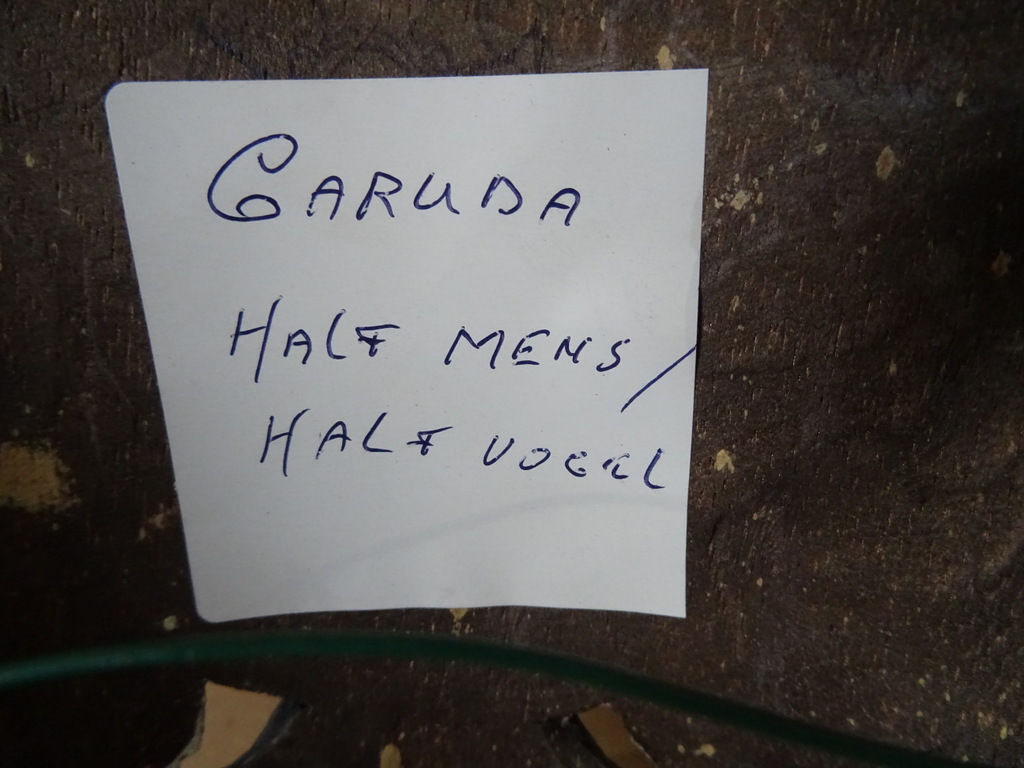 GARUDA
HALF MENS/
HALF VOGEL